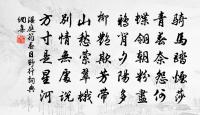 騎馬踏煙莎
青春奈怨何
蝶翎朝粉盡
鴉背夕陽多
柳艷欺芳帶
山愁縈翠蛾
別情無處說
方寸是星河
溫庭筠春日野行詞典
網集